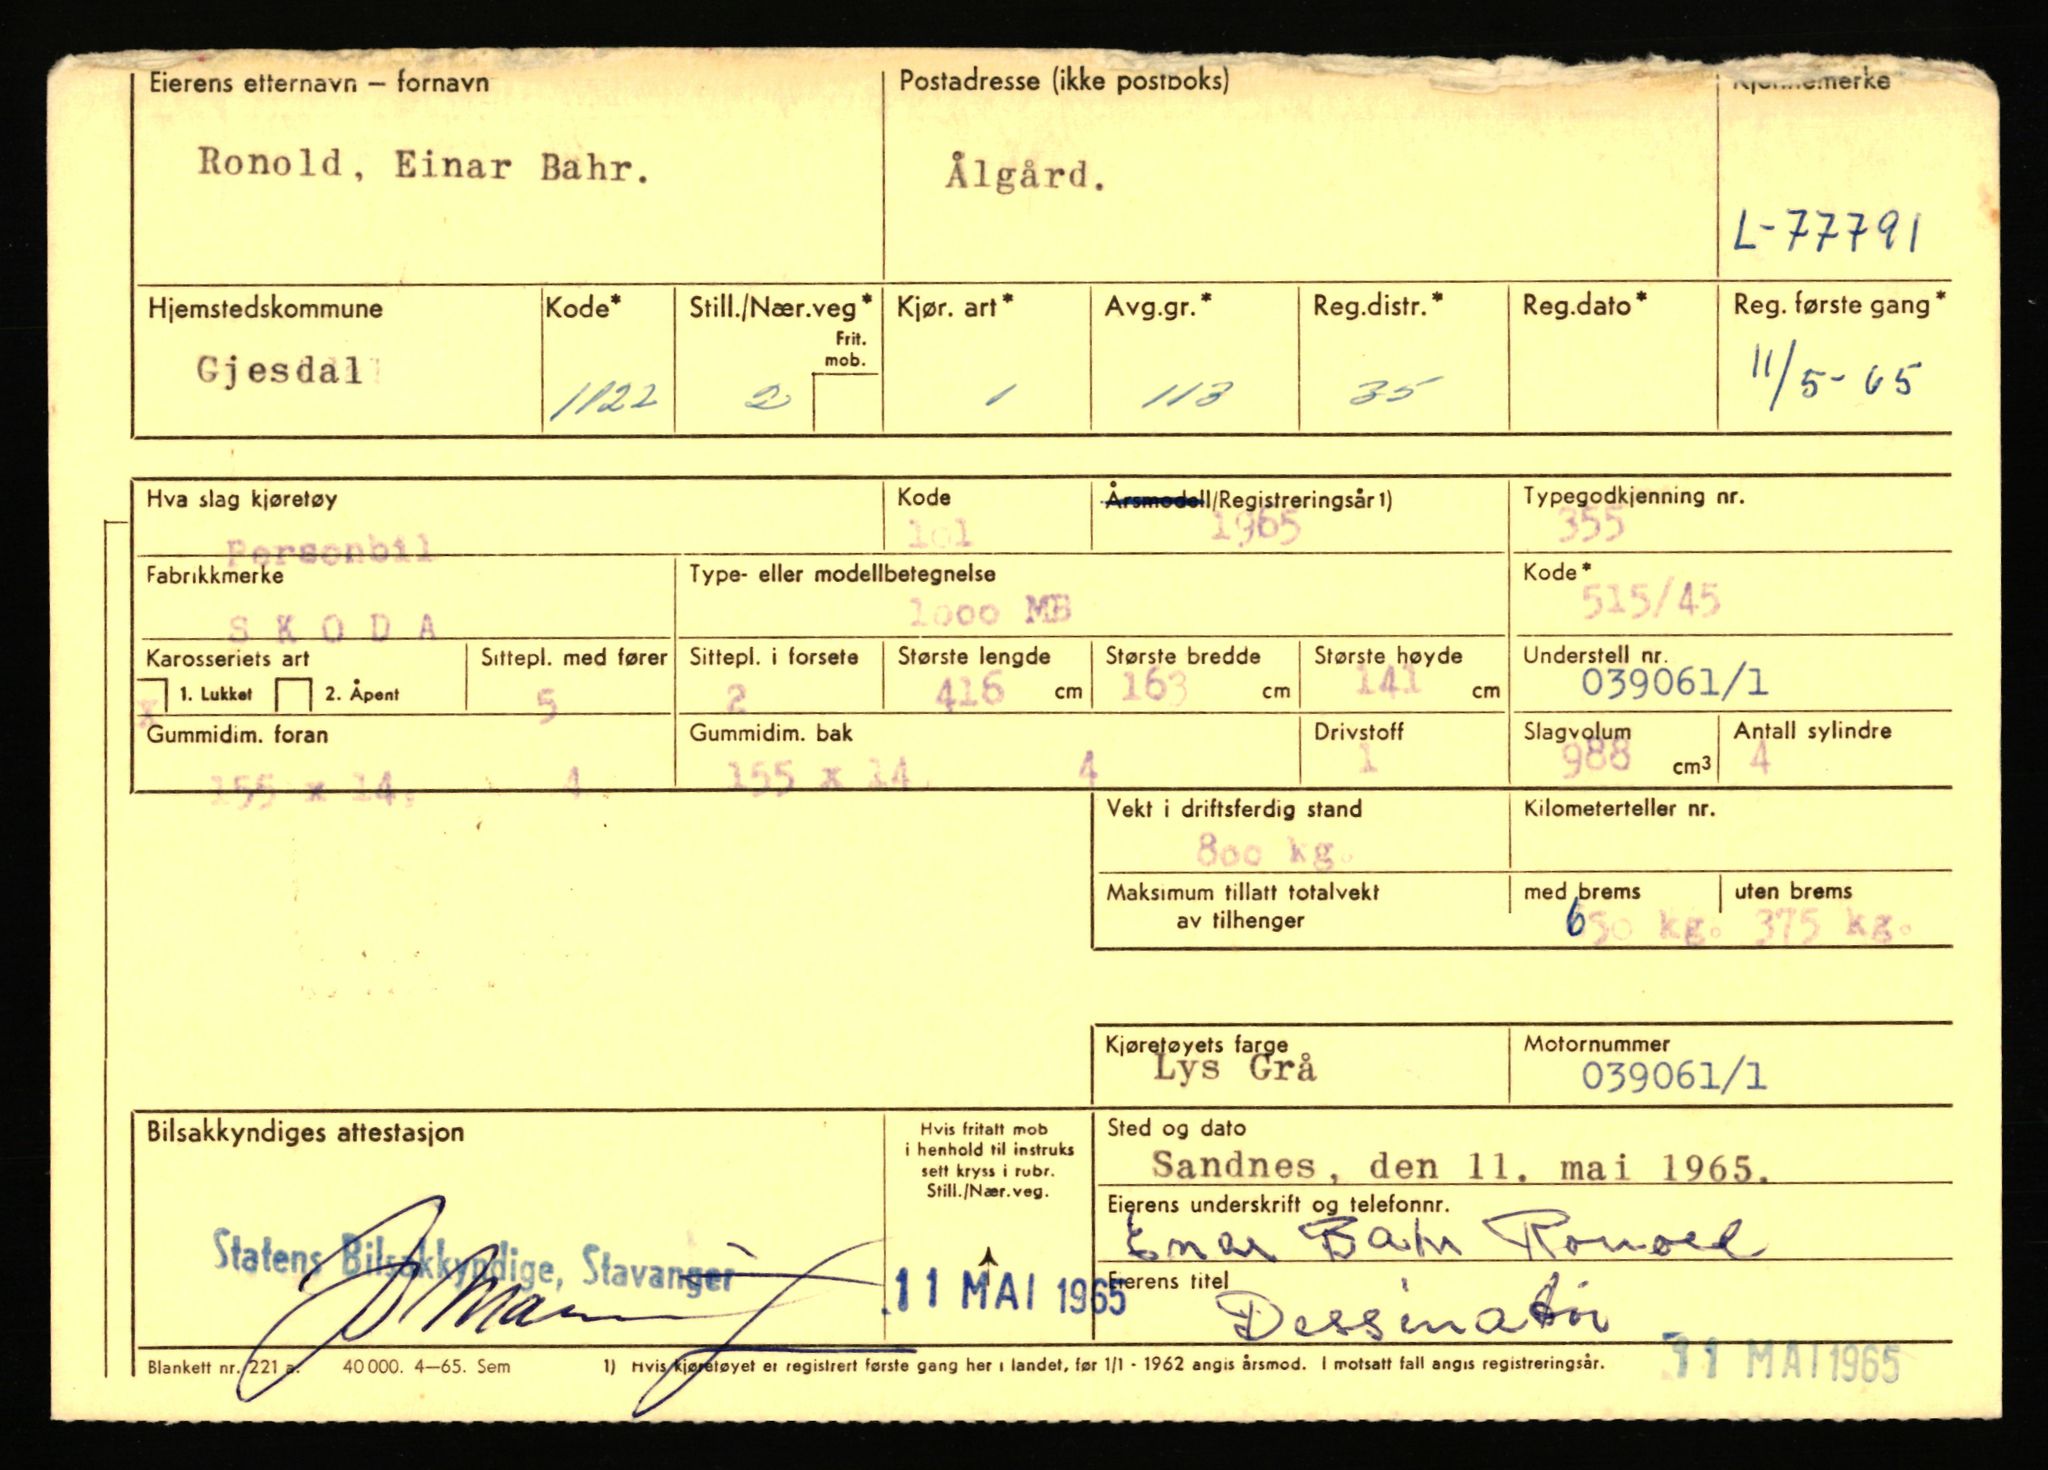 Eierens etternavn – fornavn
Postadresse (ikke postboks)
Kjennemerke
Ronold, Einar Bahr.
Ålgård.
L-77791
Hjemstedskommune
Kode*
Still./Nær.veg*
Frit. mob.
Kjør. art*
Avg.gr.*
Reg.distr.*
Reg.dato*
Reg. første gang*
Gjesdal
1122
2
1
113
35
11/5-65
Hva slag kjøretøy
Kode
Årsmodell/Registreringsår 1)
Typegodkjenning nr.
Personbil
101
1965
355
Fabrikkmerke
Type- eller modellbetegnelse
Kode*
S K O D A
1000 MB
515/45
Karosseriets art
Sittepl. med fører
Sittepl. i forsete
Største lengde
Største bredde
Største høyde
Understell nr.
x 1. Lukket
2. Åpent
5
2
416 cm
163 cm
141 cm
039061/1
Gummidim. foran
Gummidim. bak
Drivstoff
Slagvolum
Antall sylindre
155 x 14. 4
155 x 14. 4
1
988 cm3
4
Vekt i driftsferdig stand
Kilometerteller nr.
800 kg.
Maksimum tillatt totalvekt
av tilhenger
med brems
uten brems
650 kg.
375 kg.
Kjøretøyets farge
Motornummer
Lys Grå
039061/1
Bilsakkyndiges attestasjon
Hvis fritatt mob
i henhold til instruks
sett kryss i rubr.
Still./Nær.veg.
Sted og dato
Sandnes, den 11. mai 1965.
Eierens underskrift og telefonnr.
Einar Bahr Ronold
Statens Bilsakkyndige, Stavanger
11 MAI 1965
Eierens titel
Dessinatør
Blankett nr. 221 a. 40 000. 4–65. Sem
1) Hvis kjøretøyet er registrert første gang her i landet, før 1/1 - 1962 angis årsmod. I motsatt fall angis registreringsår.
11 MAI 1965